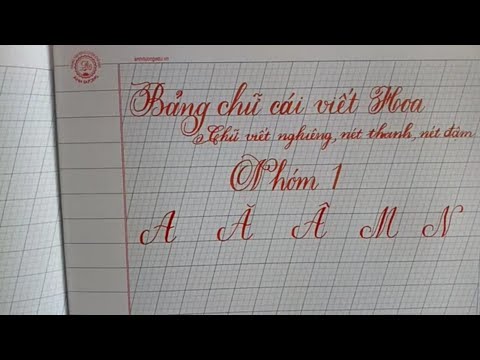 Bảng chữ cái viết Hoa
Chữ viết nghiêng, nét thanh, nét đậm
Nhóm 1
A Ă Â M N